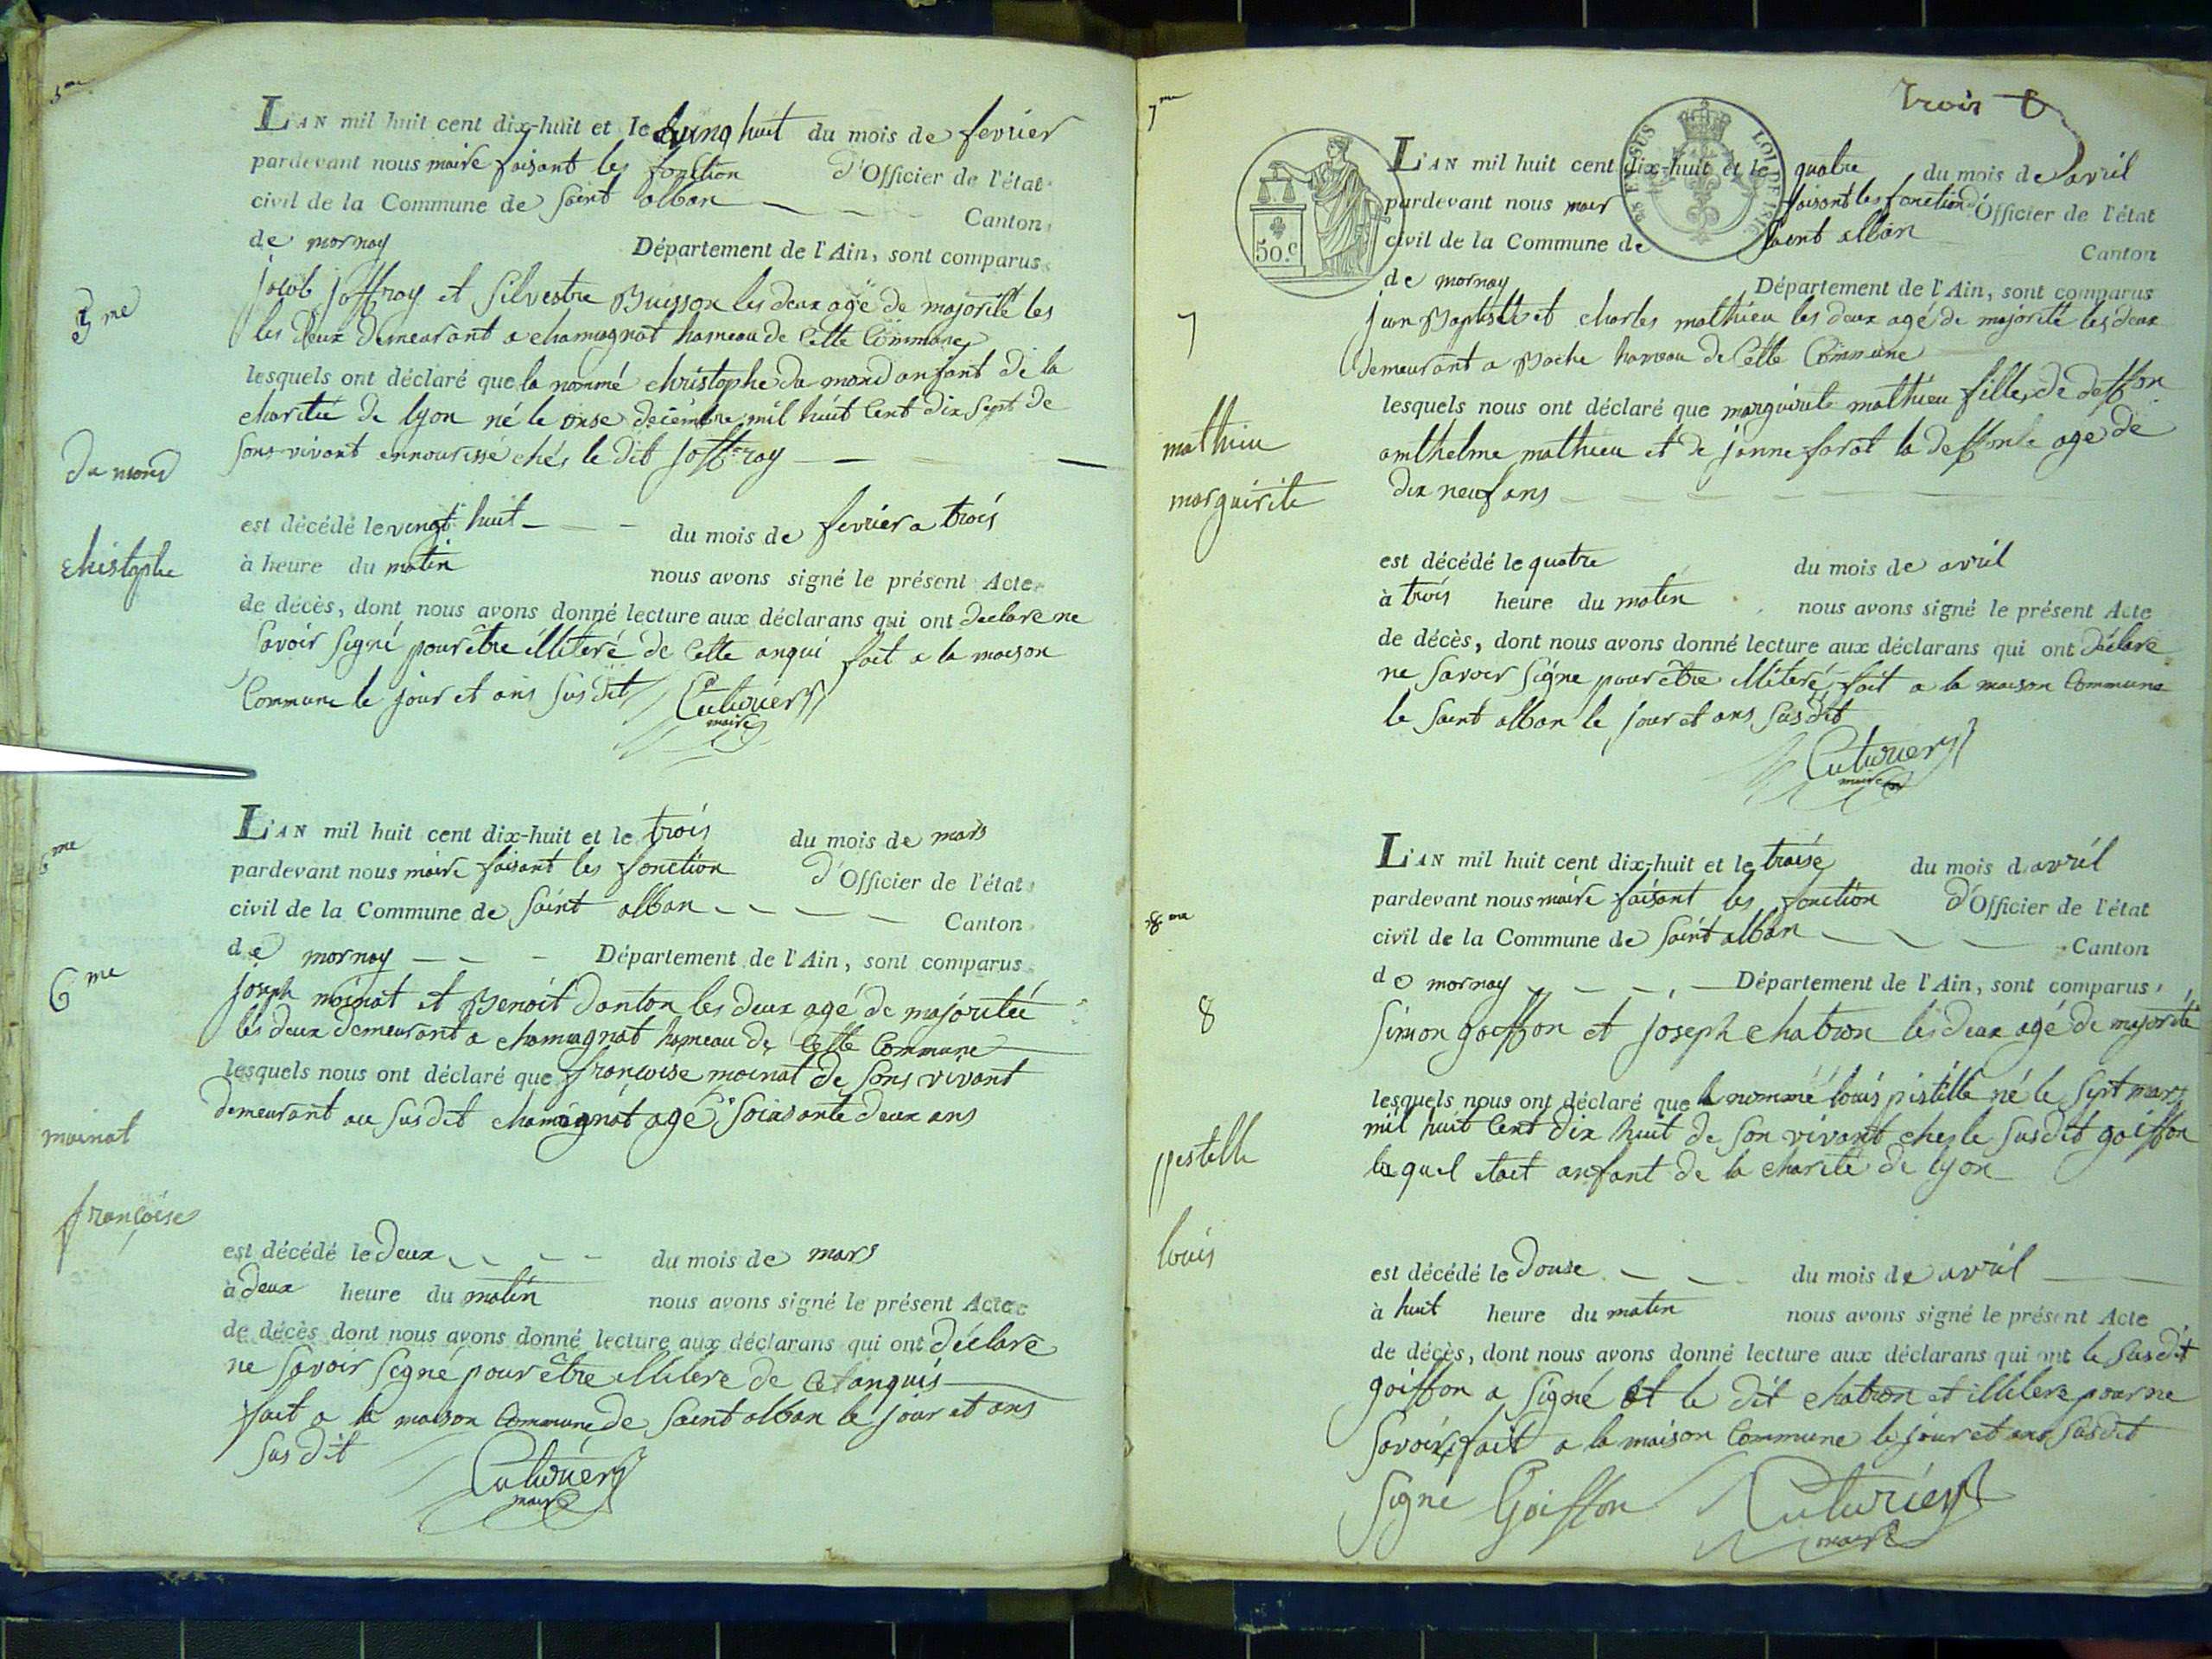 5me
L'AN mil huit cent dix-huit et le vingt huit du mois de fevrier
pardevant nous maire faisant les fonction d'Officier de l'état
civil de la Commune de Saint alban Canton
de mornay Département de l'Ain, sont comparus
jacob joffray et Silvestre Buisson les deux agé de majorité les
les deux demeurant a chamagnat hameau de Cette Commune
5me
lesquels ont déclaré que la nommé christophe du mond anfant de la
charité de lyon né le onse decembre mil huit Cent dix Sept de
Sons vivant ennourisse chés le dit joffray
du mond
christophe
est décédé le vingt huit du mois de fevrier a trois
à heure du matin nous avons signé le présent Acte
de décès, dont nous avons donné lecture aux déclarans qui ont declare ne
Savoir Signé pour être illiteré de Cette anqui fait a la maison
Commune le jour et ans Sus dit Cuturier
maire
6me
L'AN mil huit cent dix-huit et le trois du mois de mars
pardevant nous maire faisant les fonction d'Officier de l'état
civil de la Commune de Saint alban Canton
de mornay Département de l'Ain, sont comparus
6me
joseph moinat et Benoit danton les deux agé de majoritée
les deux demeurant a chamagnat hameau de Cette Commune
lesquels nous ont déclaré que françoise moinat de Sons vivant
demeurant au Sus dit chamagnat agé Soixsante deux ans
moinat
françoise
est décédé le deux du mois de mars
à deux heure du matin nous avons signé le présent Acte
de décès dont nous avons donné lecture aux déclarans qui ont déclare
ne Savoir Signé pour être illitere de Cet anquis
fait a la maison Commune de Saint alban le jour et ans
Sus dit
Cuturier
maire
Trois
7me
50.c
LOI DE
L'AN mil huit cent dix-huit et le quatre du mois de avril
pardevant nous mair faisant les fonction d'Officier de l'état
civil de la Commune de Saint alban Canton
de mornay Département de l'Ain, sont comparus
7
jean Baptiste et charles mathieu les deux agé de majorité les deux
demeurant a Boche hameau de Cette Commune
lesquels nous ont déclaré que marguirite mathieu fille de deffon
amthelme mathieu et de janne farat la deffonte age de
dix neuf ans
mathieu
marguirite
est décédé le quatre du mois de avril
à trois heure du matin nous avons signé le présent Acte
de décès, dont nous avons donné lecture aux déclarans qui ont déclare
ne Savoir Signe pour être illiteré fait a la maison Commune
le Saint alban le jour et ans Sus dit
Cuturier
maire
8me
L'AN mil huit cent dix-huit et le traise du mois d avril
pardevant nous maire faisant les fonction d'Officier de l'état
civil de la Commune de Saint alban Canton
de mornay Département de l'Ain, sont comparus
8
Simon goiffon et joseph chatron les deux agé de majorité
lesquels nous ont déclaré que le nommé louis pistille né le Sept mars
mil huit Cent dix huit de Son vivant ches le Susdit goiffon
le quel etait anfant de la charité de lyon
pestelle
louis
est décédé le douse du mois de avril
à huit heure du matin nous avons signé le présent Acte
de décès, dont nous avons donné lecture aux déclarans qui ont le Susdit
goiffon a Signé et le dit chatron et illitere pour ne
Savoir fait a la maison Commune le jour et ans Susdit
Signé Goiffon Cuturier
maire